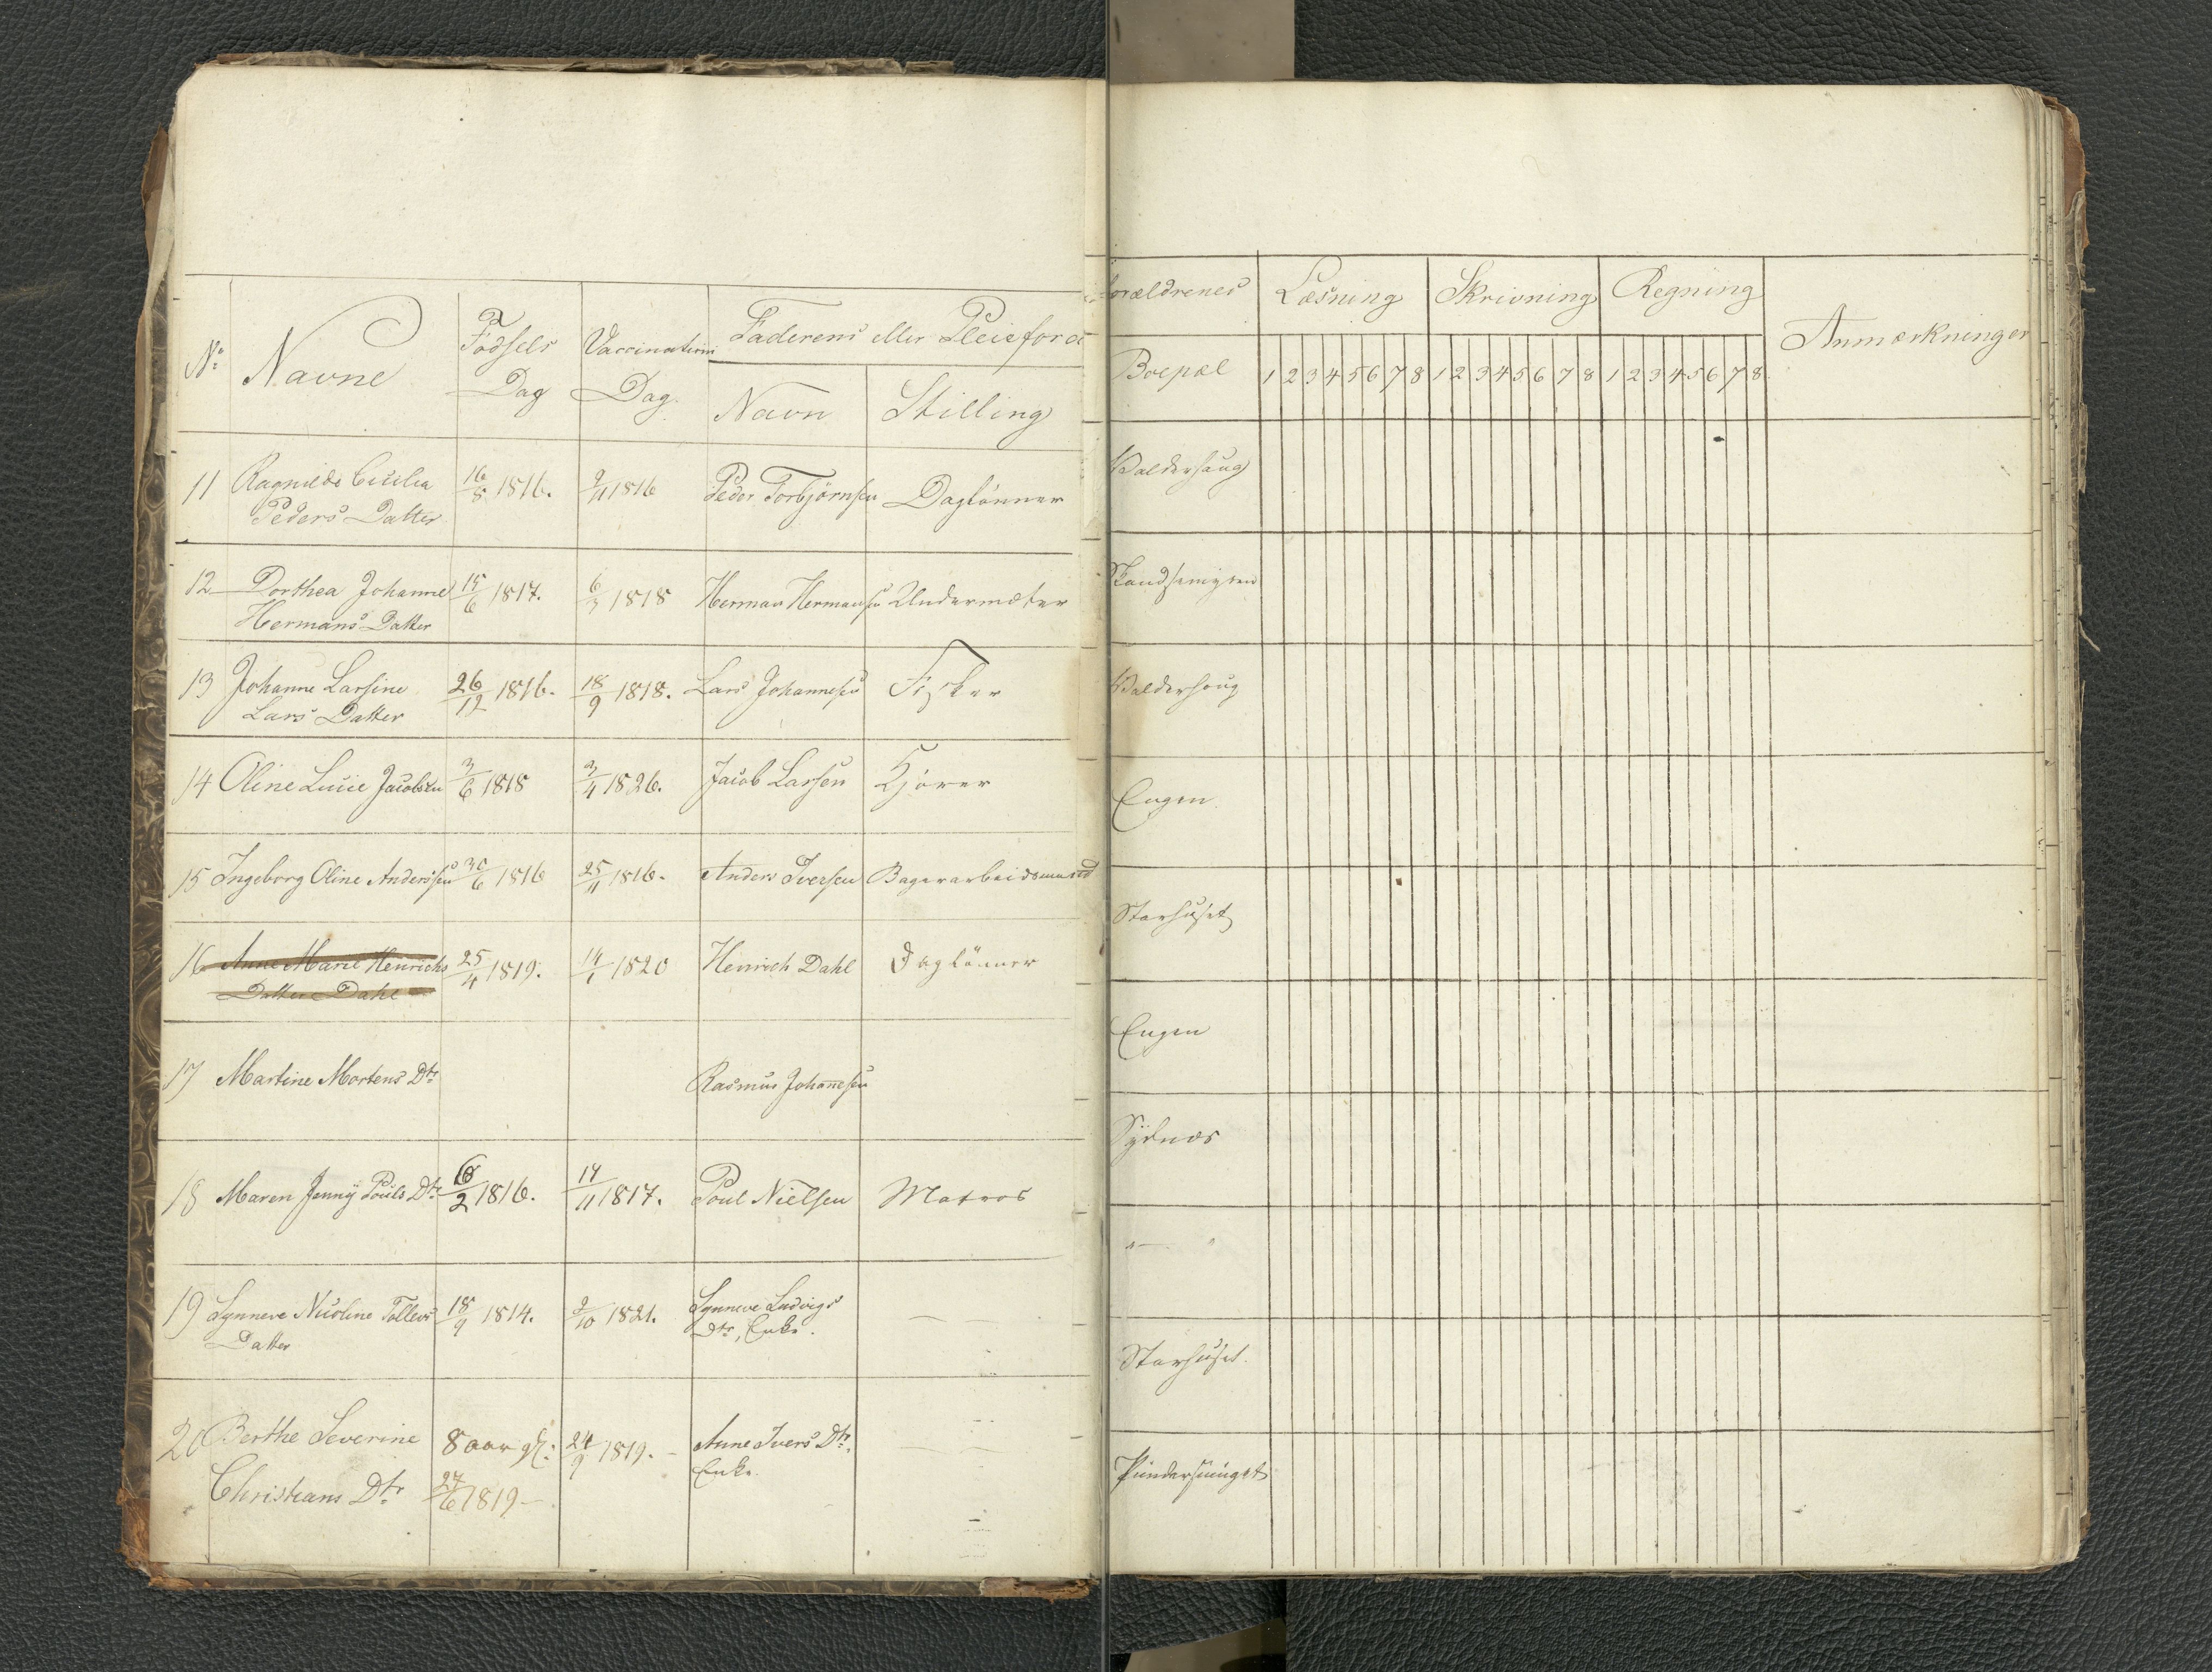 No Navne Fødsels Dag Vaccinations Dag. Faderens eller Pleieforældrenes Læsning Skrivning Regning Anmærkninger
Navn Stilling Boepæl 1 2 3 4 5 6 7 8 1 2 3 4 5 6 7 8 1 2 3 4 5 6 7 8
11 Ragnilde Cicilia 16/8 1816. 9/11 1816 Peder Torbjørnsen Daglønner Valderhaug
Peders Datter
12 Dorthea Johanne 15/6 1817. 1818 Herman Hermansen Undermæler
Hermans Datter
13 Johanne Larsine 26/12 1816. 18/9 1818. Lars Johannesen Fisker Valderhoug
Lars Datter
14 Oline Lucie Jacobsen 3/6 1818 3/4 1826. Jacob Larsen Kjører Engen
15 Ingeborg Oline Anderssen 30/6 1816 25/11 1816. Anders Iversen Bagerarbeidsmand Starhuset
16 Anne Marie Henrichs 25/4 1819. 14/1 1820 Henrich Dahl Daglønner Engen
Datter Dahl
17 Martine Mortens Dtr Rasmus Johannesen Sydnæs
18 Maren Jenny Pouls Dtr 2 1816. 14/11 1817. Poul Nielsen Matros — "
19 Synneve Nicoline Tollevs 18/9 1814. 2/10 1821. Synneve Ludvigs — Starhuset.
Datter Dtr, Enke.
20 Berthe Severine 8 aar gl: 24/9 1819. - Anne Ivers Dtr.
Christians Dtr 27/6 1819 - Enke.